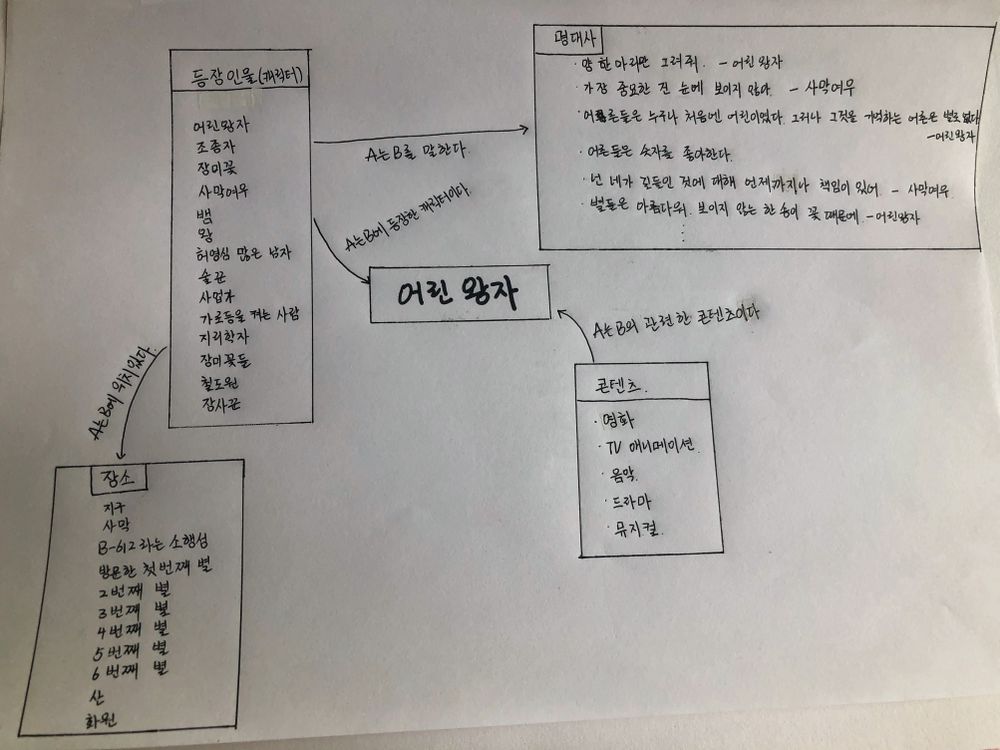 등장인물(캐릭터)
어린왕자
조종자
장미꽃
사막여우
뱀
왕
허영심 많은 남자
술꾼
사업가
가로등을 켜는 사람
지리학자
장미꽃들
철도원
장사꾼
A는 B를 말한다.
명대사
· 양 한마리만 그려줘. - 어린왕자
· 가장 중요한 건 눈에 보이지 않아. - 사막여우
· 어른들은 누구나 처음엔 어린이였다. 그러나 그것을 기억하는 어른은 별로 없다.
- 어린왕자
· 어른들은 숫자를 좋아한다.
· 넌 네가 길들인 것에 대해 언제까지나 책임이 있어. - 사막여우
· 별들은 아름다워. 보이지 않는 한 송이 꽃 때문에. - 어린왕자
⋮
A는 B에 등장한 캐릭터이다.
어린 왕자
A는 B와 관련한 콘텐츠이다
콘텐츠.
· 영화
· TV 애니메이션.
· 음악.
· 드라마
· 뮤지컬.
A는 B에 위치있다.
장소
지구
사막
B-612 라는 소행성
방문한 첫번째 별
2번째 별
3번째 별
4번째 별
5번째 별
6번째 별
산
화원